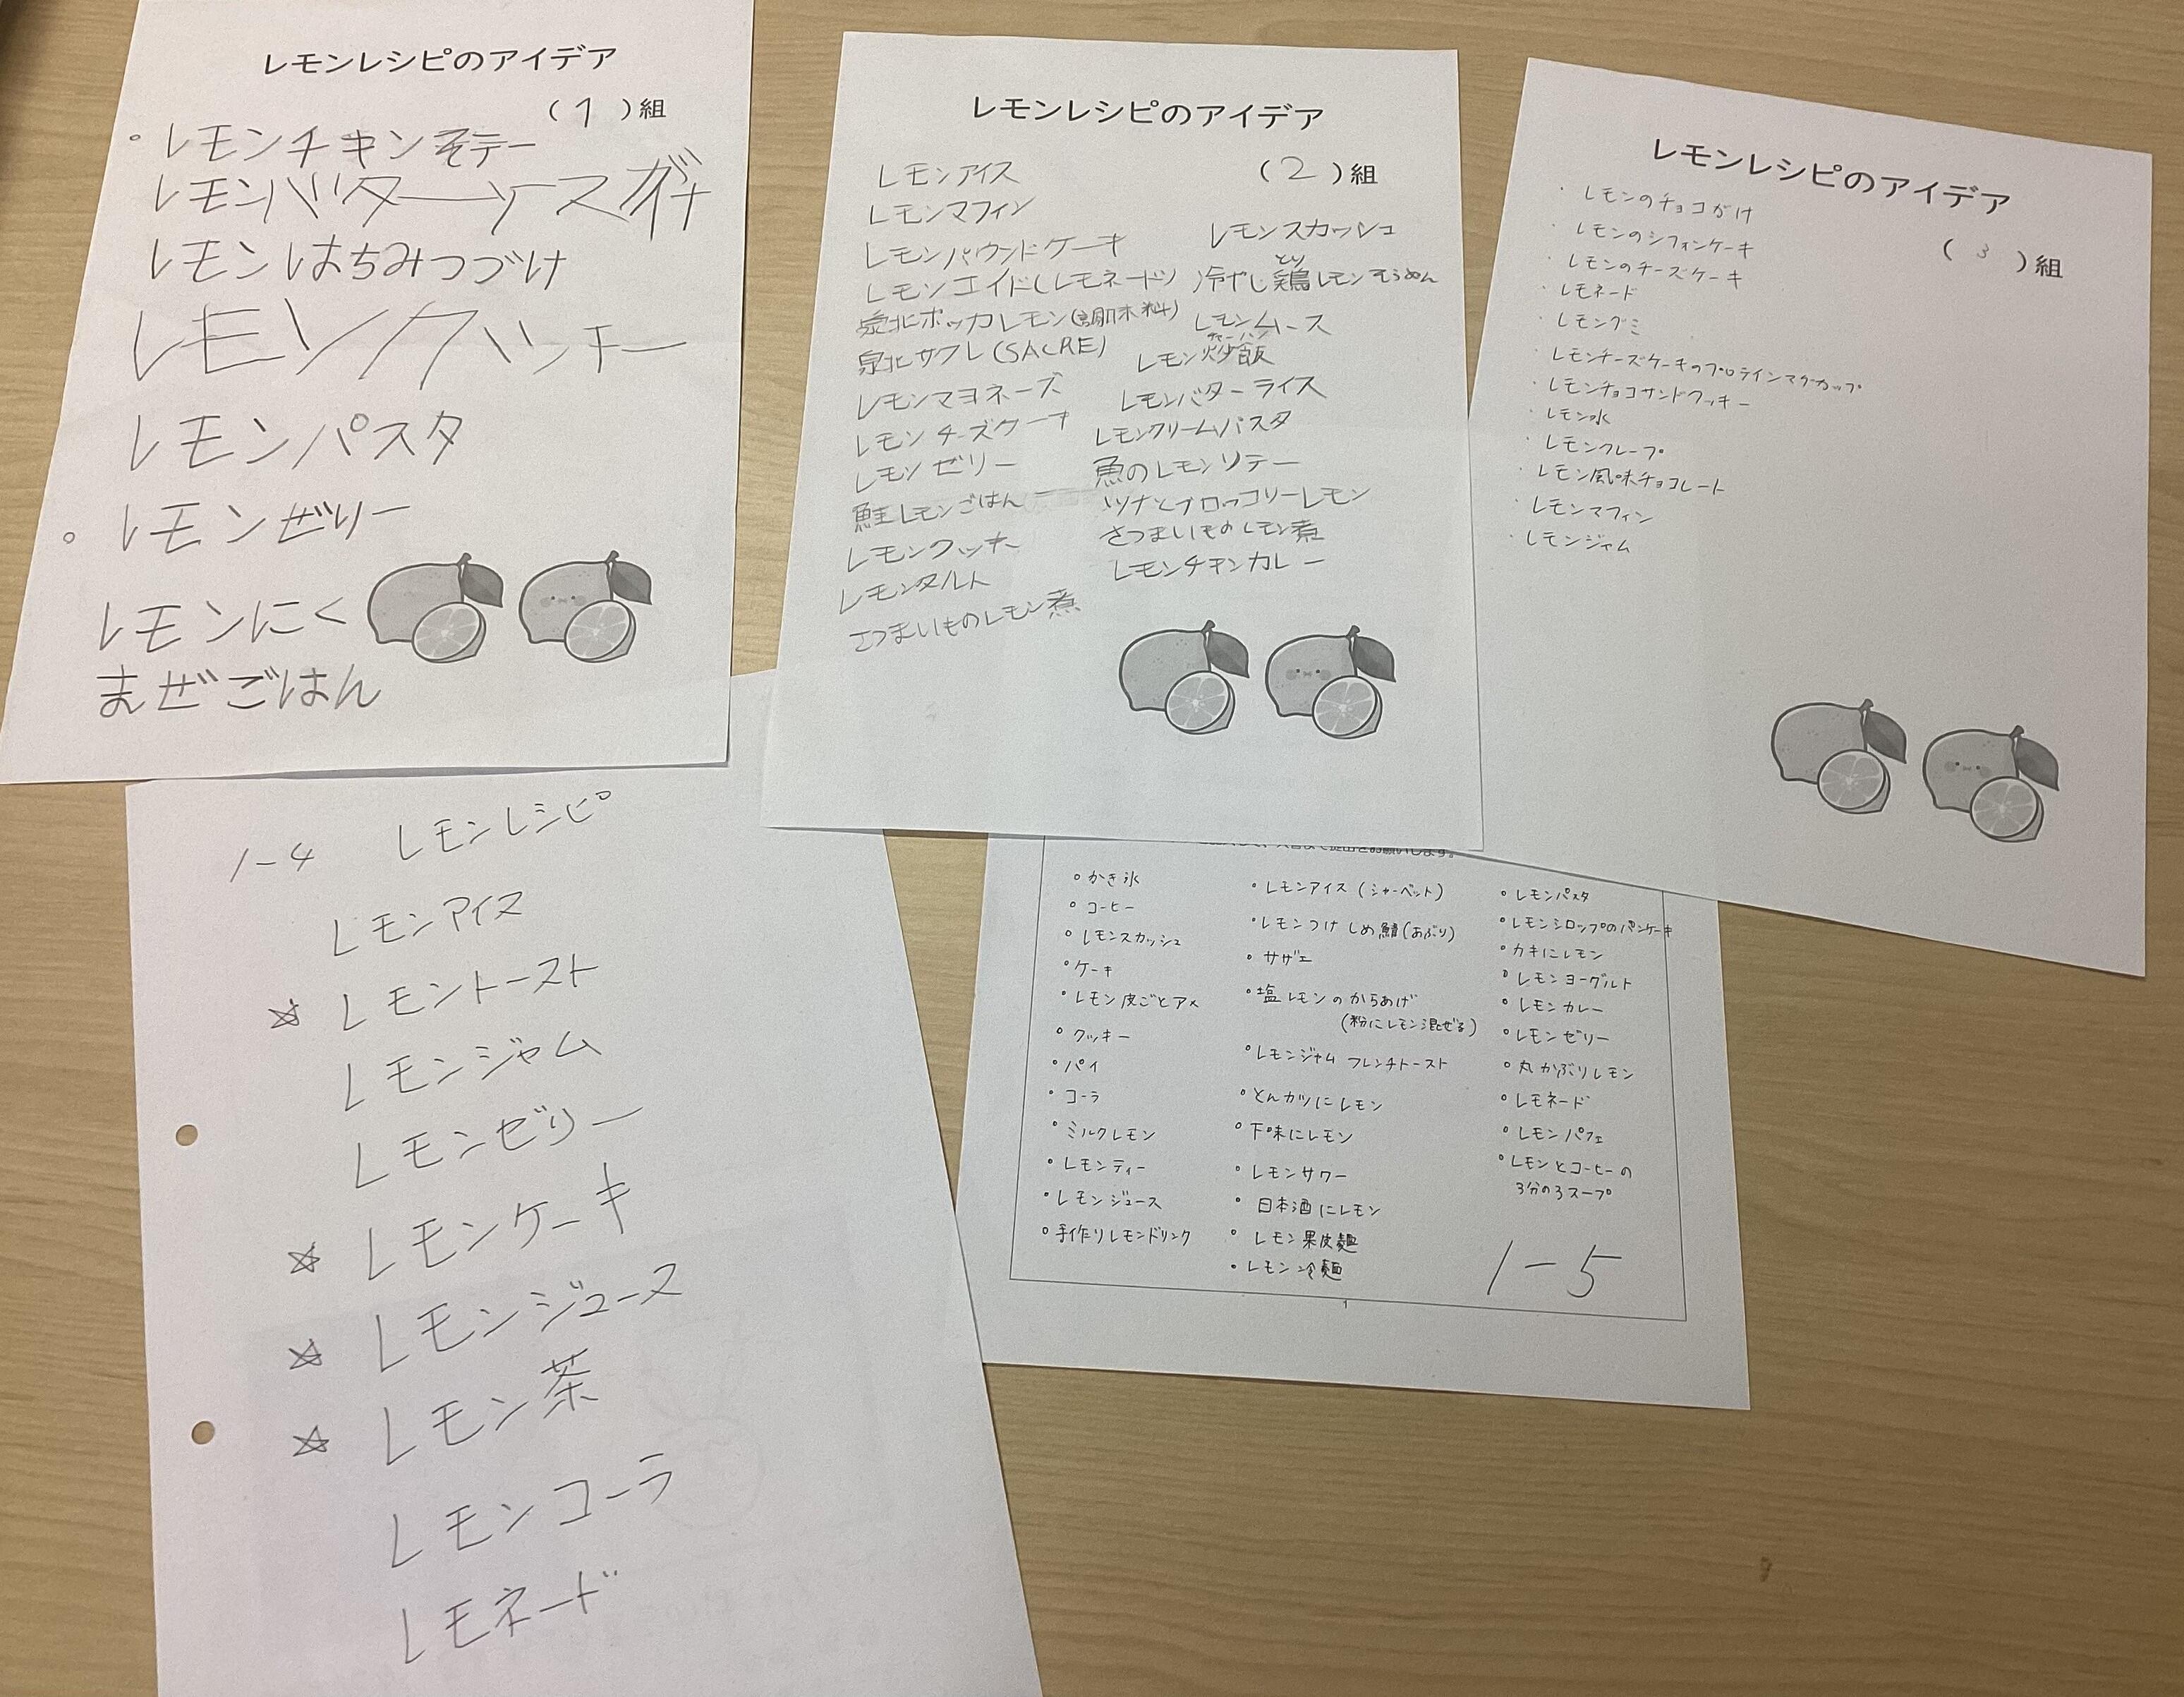 レモンレシピのアイデア
(1)組
。レモンチキンそテー
レモンバターソースがけ
レモンはちみつづけ
レモンクッキー
レモンパスタ
。レモンゼリー
レモンにく
まぜごはん
レモンレシピのアイデア
(2)組
レモンアイス
レモンマフィン
レモンパウンドケーキ
レモンエイド(レモネード)
泉北ポッカレモン(調味料)
泉北サクレ(SACRE)
レモンマヨネーズ
レモンチーズケーキ
レモンゼリー
鮭レモンごはん
レモンクッキー
レモンタルト
さつまいものレモン煮
レモンスカッシュ
冷やし鶏レモンそうめん
とり
レモンムース
レモン炒飯
チャーハン
レモンバターライス
レモンクリームパスタ
魚のレモンソテー
ツナとブロッコリーレモン
さつまいものレモン煮
レモンチキンカレー
レモンレシピのアイデア
(3)組
・レモンのチョコがけ
・レモンのシフォンケーキ
・レモンのチーズケーキ
・レモネード
・レモングミ
・レモンチーズケーキのプロテインマグカップ
・レモンチョコサンドクッキー
・レモン水
・レモンクレープ
・レモン風味チョコレート
・レモンマフィン
・レモンジャム
1-4 レモンレシピ
レモンアイス
☆ レモントースト
レモンジャム
レモンゼリー
☆ レモンケーキ
☆ レモンジュース
☆ レモン茶
レモンコーラ
レモネード
。かき氷
。コーヒー
。レモンスカッシュ
。ケーキ
。レモン皮ごとアメ
。クッキー
。パイ
。コーラ
。ミルクレモン
。レモンティー
。レモンジュース
。手作りレモンドリンク
・レモンアイス(シャーベット)
・レモンつけ しめ鯖(あぶり)
・サザエ
・塩レモンのからあげ
(粉にレモン混ぜる)
・レモンジャム フレンチトースト
・とんカツにレモン
・下味にレモン
・レモンサワー
・日本酒にレモン
・レモン果皮麺
・レモン冷麺
。レモンパスタ
。レモンシロップのパンケーキ
。カキにレモン
。レモンヨーグルト
。レモンカレー
。レモンゼリー
。丸かぶりレモン
。レモネード
。レモンパフェ
。レモンとコーヒーの
3分の3スープ
1-5
1